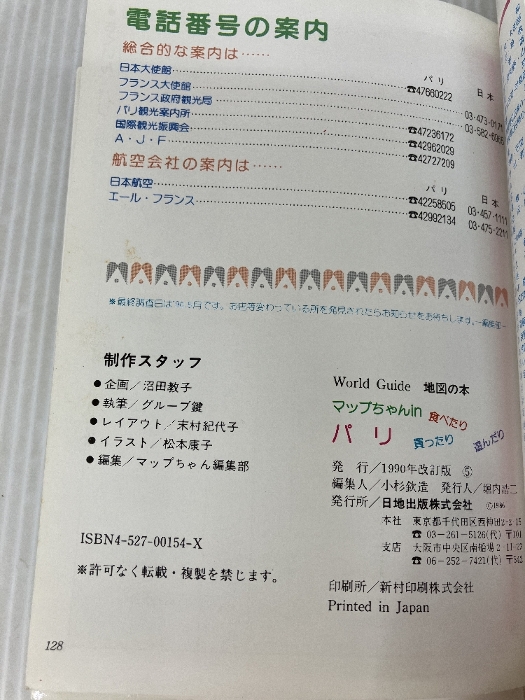 電話番号の案内
総合的な案内は……
パリ 日本
日本大使館 ☎47660222
フランス大使館 03-473-0171
フランス政府観光局 03-582-6965
パリ観光案内所 ☎47236172
国際観光振興会 ☎42962029
A・J・F ☎42727209
航空会社の案内は……
パリ 日本
日本航空 ☎42258505 03-457-1111
エール・フランス ☎42992134 03-475-2211
制作スタッフ
●企画／沼田教子
●執筆／グループ鍵
●レイアウト／末村紀代子
●イラスト／松本康子
●編集／マップちゃん編集部
ISBN4-527-00154-X
※許可なく転載・複製を禁じます。
World Guide 地図の本
マップちゃんin 食べたり
パリ 買ったり 遊んだり
発 行／1990年改訂版 ⑤
編集人／小杉鉄造 発行人／堀内浩二
発行所／日地出版株式会社 ©1986
本社 東京都千代田区西神田2-2-15
☎ 03-261-5126(代) 〒101
支店 大阪市中央区南船場2-11-
☎ 06-252-7421(代) 〒542
印刷所／新村印刷株式会社
Printed in Japan
128